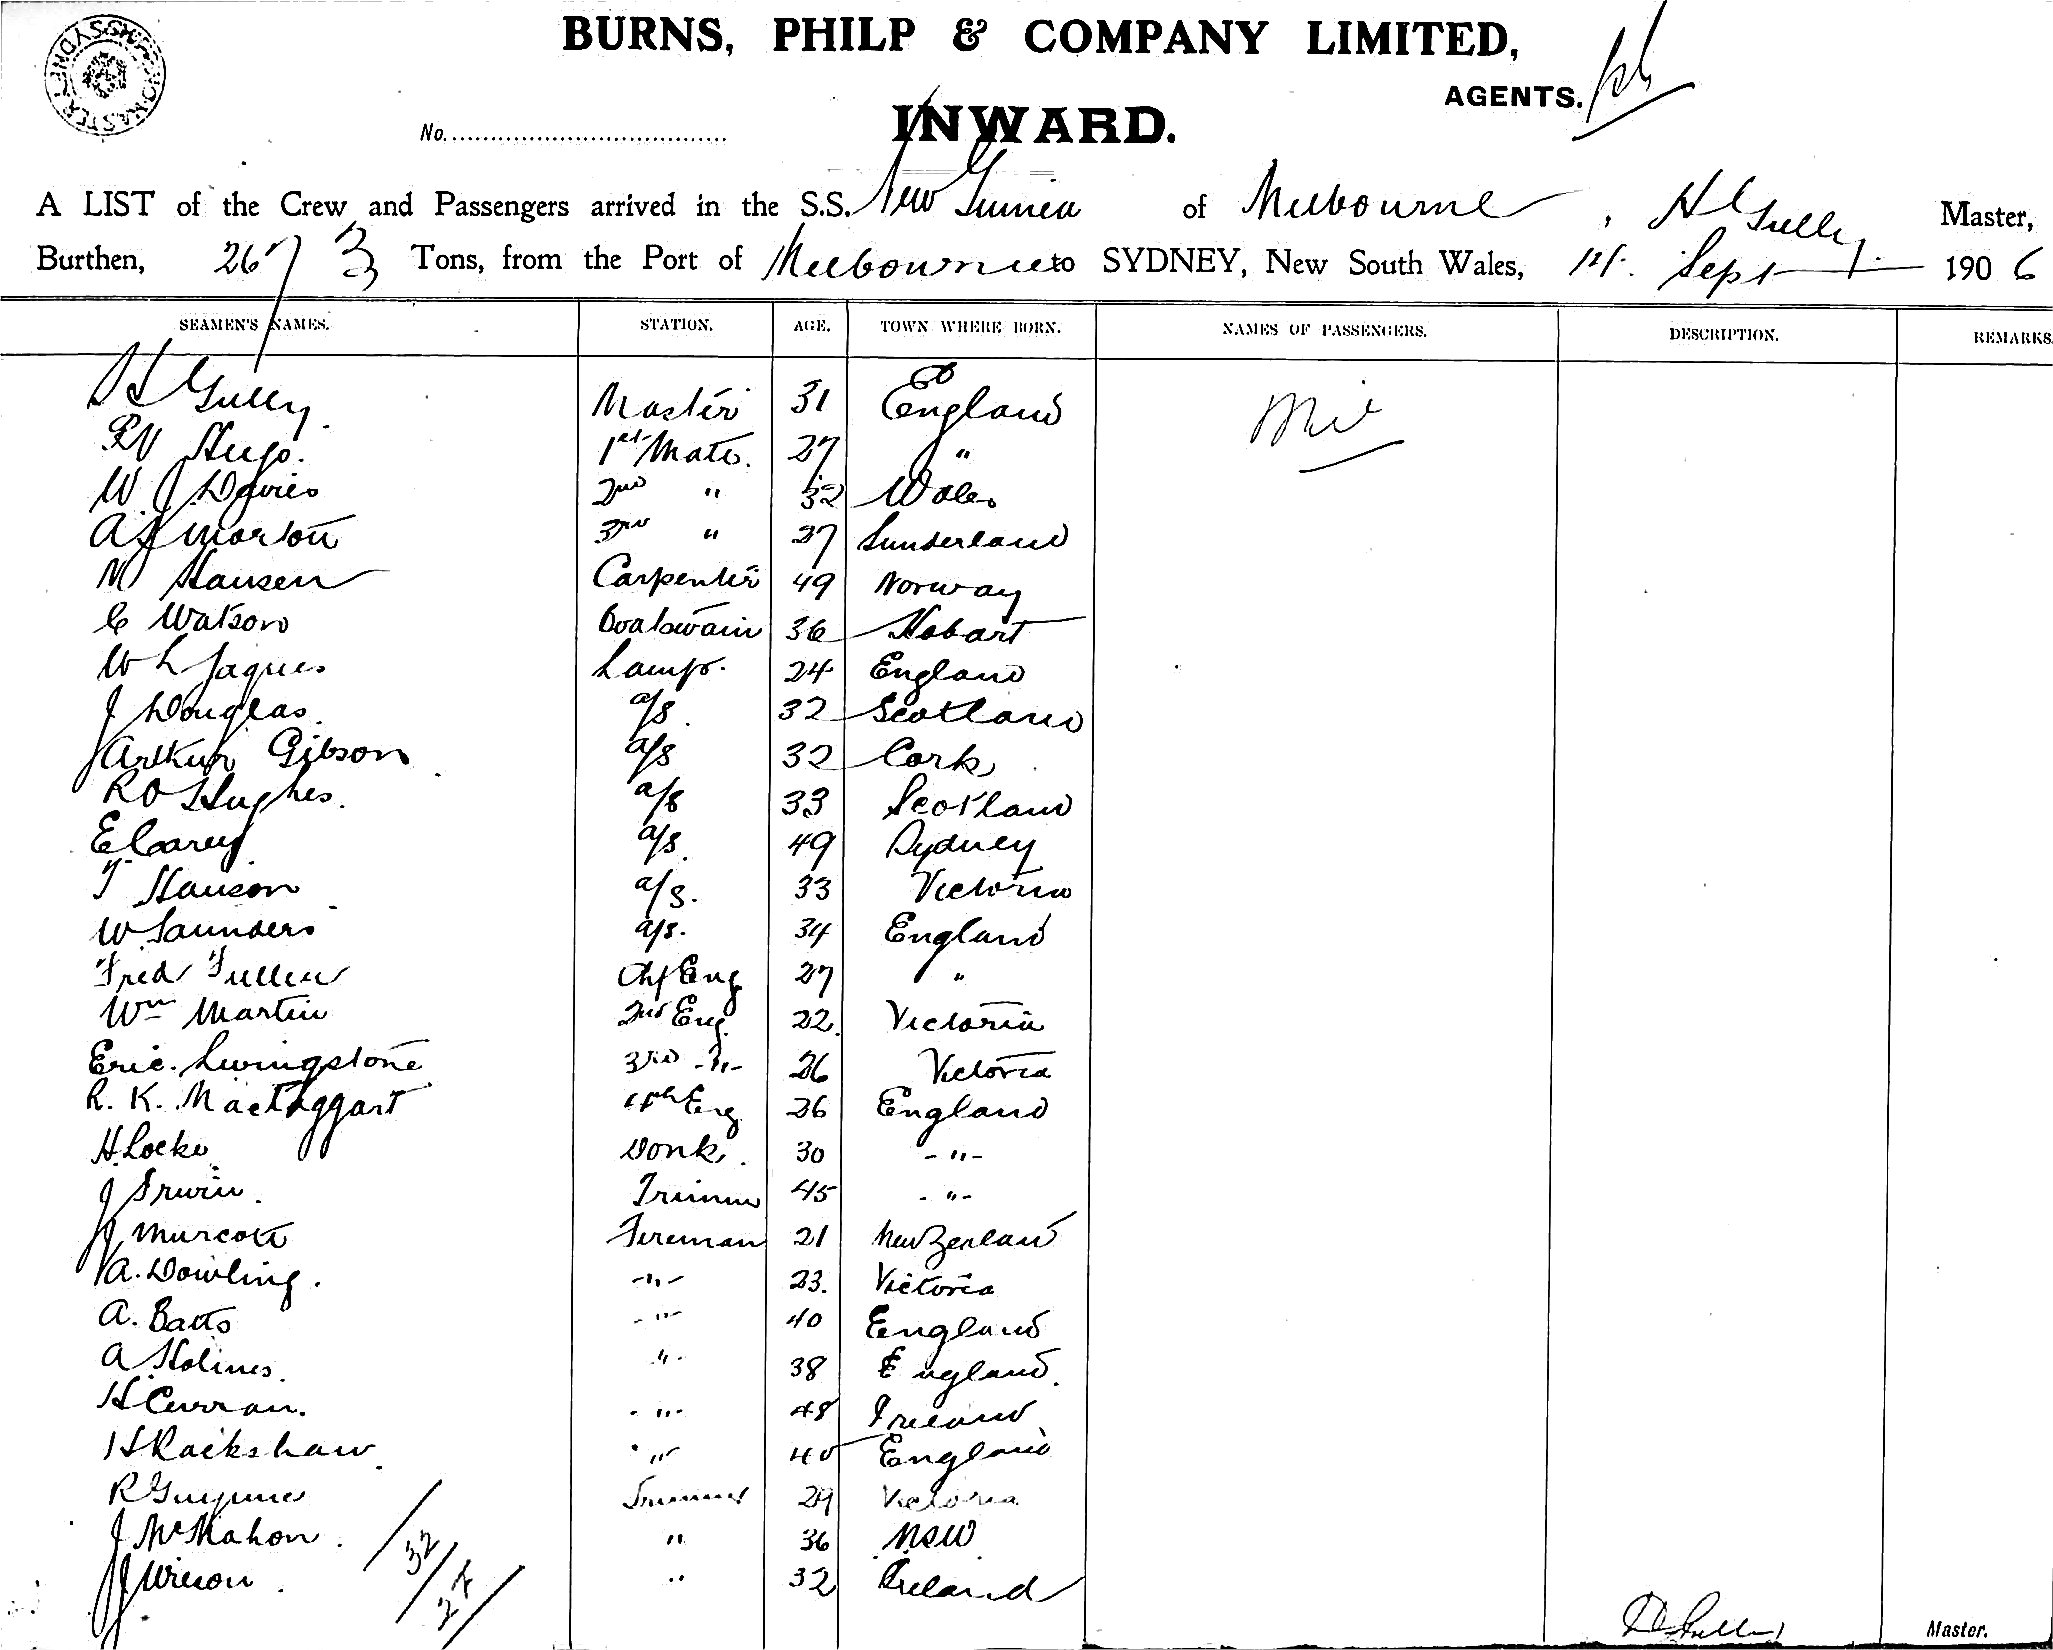 BURNS, PHILP & COMPANY LIMITED,
AGENTS.
No.
INWARD.
A LIST of the Crew and Passengers arrived in the S.S. New Guinea of Melbourne, H Gully Master,
Burthen, 267 Tons, from the Port of Melbourne to SYDNEY, New South Wales, 1st. Sept 1906
SEAMEN'S NAMES. STATION. AGE. TOWN WHERE BORN. NAMES OF PASSENGERS. DESCRIPTION. REMARKS
H Gully Master 31 England Nil
Hugo. 1st Mate. 27 "
W J Davies 2nd " 32 Wales
A J Morton 3rd " 27 Sunderland
N Hansen Carpenter 49 Norway
C Watson Boatswain 36 Hobart
W L Jaques Lamps. 24 England
J Douglas. a/s. 32 Scotland
Arthur Gibson a/s 32 Cork
R O Hughes. a/s 33 Scotland
E Carey a/s. 49 Sydney
T Hanson a/s. 33 Victoria
W. Saunders a/s. 34 England
Fred Fullen Chf Eng 27 "
Wm Martin 2nd Eng. 22. Victoria
Eric. Livingstone 3rd -"- 26 Victoria
R. K. MacTaggart 4th Eng 26 England
H. Locke Donk. 30 -"-
J Irwin. Trimmer 45 -"-
J Murcott Fireman 21 New Zealand
A. Dowling. -"- 23. Victoria
A. Batts -"- 40 England
A Holmes. " 38 England.
H Curran. -"- 48 Ireland
H Raikshaw. " 40 England
R Trimmer 29 Victoria
J McMahon. " 36 NSW
J Wilson. " 32 Ireland
32
27
H Gully Master.